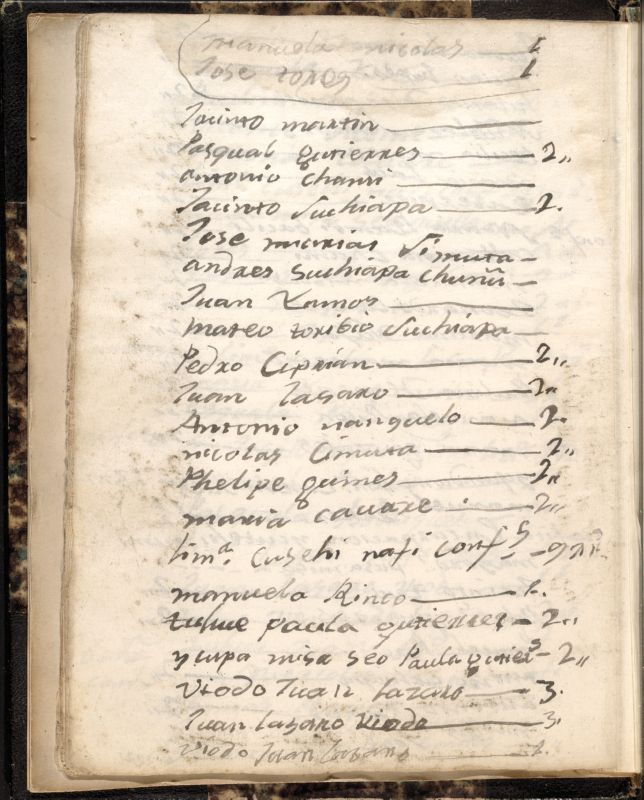 manuela nicolas — 1
Jose torres — 1
Jacinto martin —
Pasqual gutierres — 2,,
antonio chanti —
Jacinto Suchiapa — 2.
Jose marias Simuta —
andres Suchiapa
Juan Ramos —
mateo toribio Suchiapa —
Pedro Ciprian — 2,,
Juan Lasaro — 2,,
Antonio nanguelo — 2.
nicolas Cimuta — 2,,
Phelipe gomes — 2,,
maria cauare — 2,,
lim.a Cushi nafi conf.s
manuela Rinco — 1.
tuhue paula gutierres — 2,,
y cupa misa seo Paula gutier.s — 2,,
Viodo Juan Lazaro — 3.
Juan Lazaro Viodo — 3.
Viodo Juan